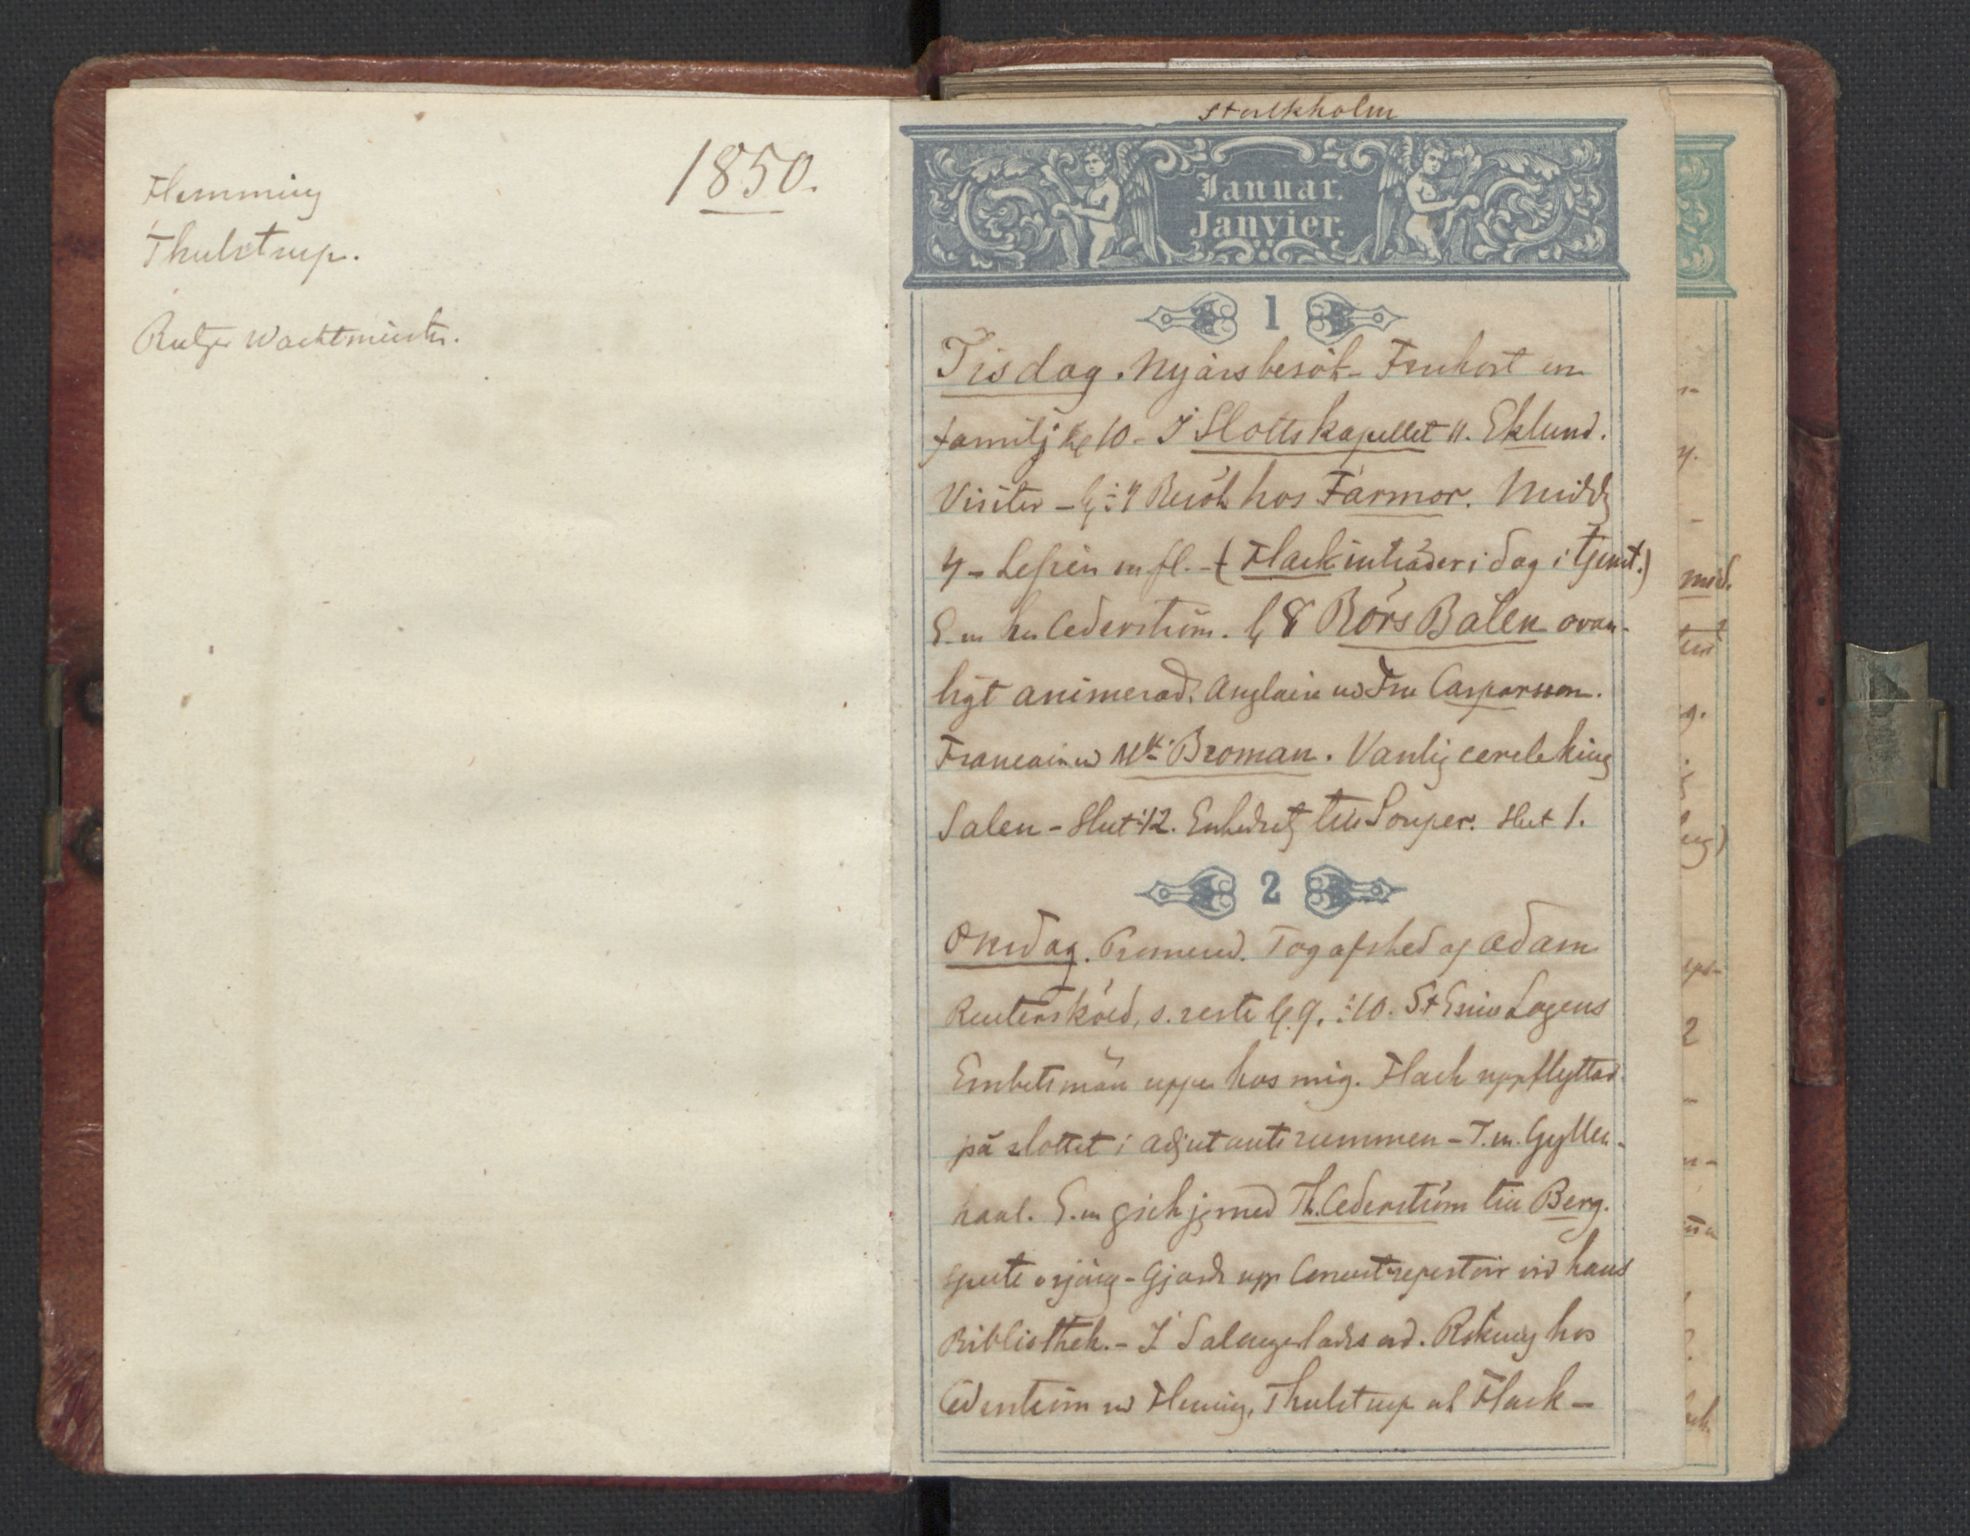 1850.
Flemming
Thulstrup.
Rutger Wachtmeister.
Stockholm
Januar.
Janvier.
1
Tisdag. Nyårsbesök - Frukost en
familj kl 10 - I Slottskapellet 11. Eklund.
Visiter - Besök hos Farmor. Midd
4 - Lefrén m fl. - (Flack inträder i dag i tjenst.)
E. m hos Cederström. kl 8 Börs Balen ovan-
ligt animerad. Anglaise md Fru Casparsson.
Francaise md Mlle Broman. Vanlig cercle kring
Salen - Slut 12. Souper. Slut 1.
2
Onsdag. Promend. Tog afsked af Adam
Reutersköld, s. reste kl 9. 10. St Eriks Logens
Embetsmän uppe hos mig. Flack uppflyttad
på slottet i adjutants rummen - T. m. Gyllen-
haal. E. m gick jg med Th. Cederström till Berg.
spelte o sjöng - Gjorde upp Concertrepertoir vid hans
Bibliothek. - I Salen Rökning hos
Cederström md Flemming, Thulstrup ch Flack -